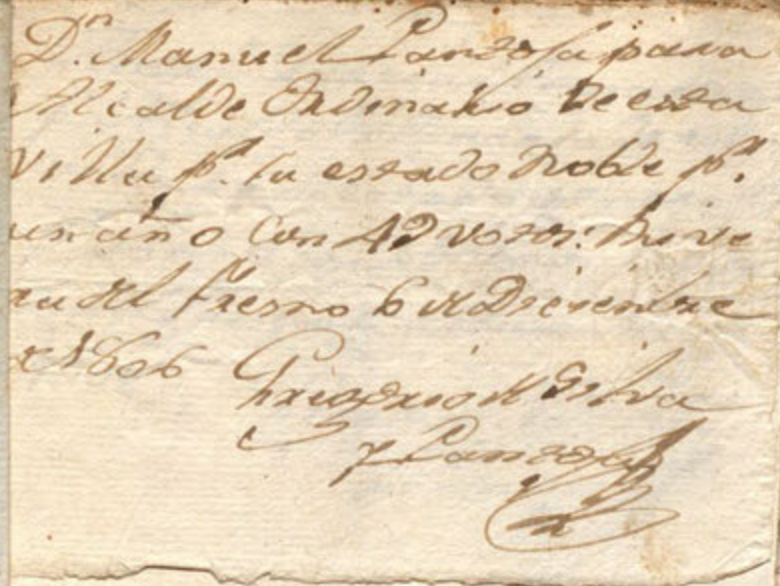 Dn. Manuel Pantoja para
Alcalde Ordinario de esta
Villa pr. su estado Noble pr.
un año con 49 votos: Rive
ra del Fresno 6 de Diciembre
de 1806
Gregorio de Silva
y Pantoja